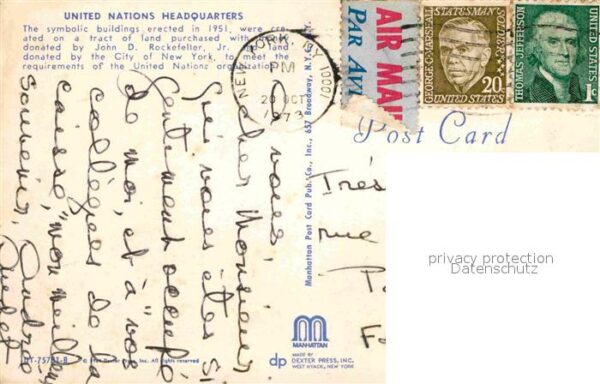 UNITED NATIONS HEADQUARTERS
The symbolic buildings erected in 1951, were cre-
ated on a tract of land purchased with money
donated by John D. Rockefeller, Jr. and land
donated by the City of New York, to meet the
requirements of the United Nations organization.
NEW YORK, N.Y.
PM
20 OCT
1973
AIR MAIL
PAR AVION
GEORGE C. MARSHALL STATESMAN SOLDIER
20c
UNITED STATES
THOMAS JEFFERSON
UNITED STATES
1c
Post Card
à vous,
cher Monsieur
qui vous êtes si
gentiment occupé
de moi, et à "vos
collègues de la
caisse," mon meilleur
souvenir,
Manhattan Post Card Pub. Co., Inc., 657 Broadway, N.Y.
Très
rue
P
F
privacy protection
Datenschutz
MANHATTAN
dp
MADE BY
DEXTER PRESS, INC.
WEST NYACK, NEW YORK
DT-75781-B
All rights reserved